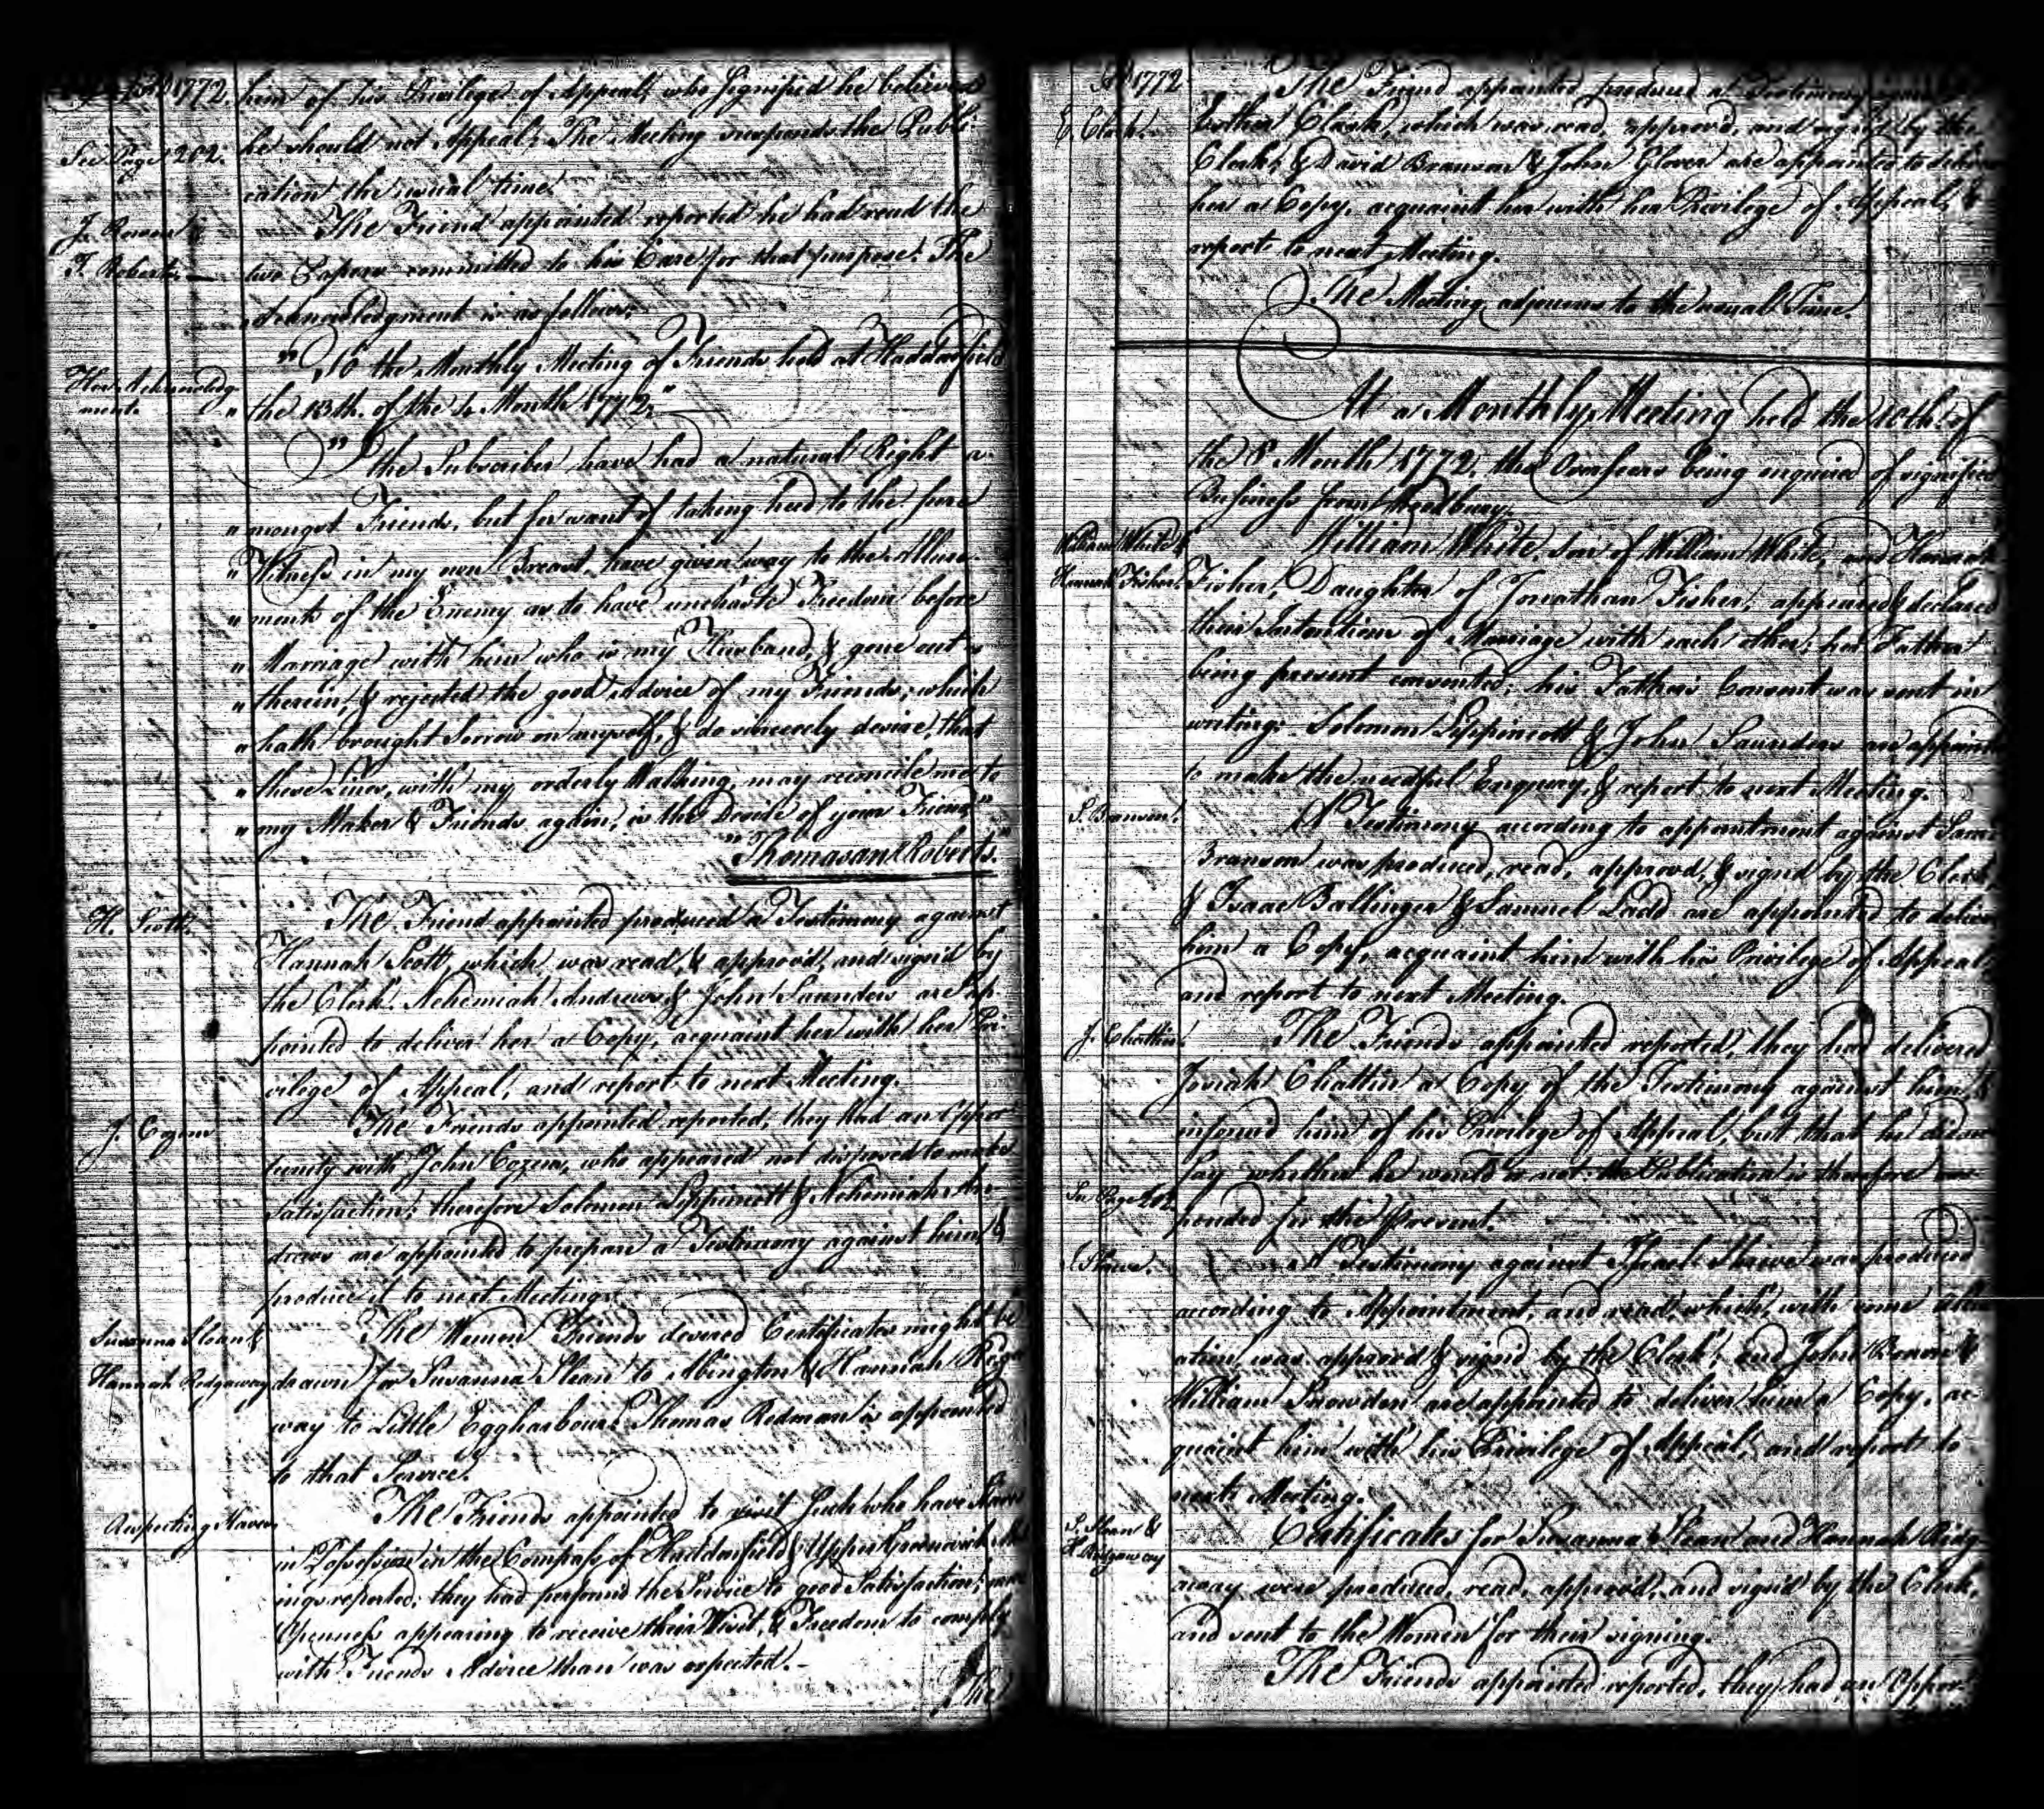 1772. him of his Privilege of Appeal, who signified he believed
See Page 202. he should not Appeal; The Meeting suspends the Publi-
cation the usual time.
J. Bowen & The Friend appointed reported he had read the
T. Roberts two Papers committed to his Care for that purpose. The
Acknowledgment is as follows;
"To the Monthly Meeting of Friends held at Haddonfield
Her Acknowledg-
ment. "the 13th. of the 4 Month 1772."
"I the Subscriber have had a natural Right a-
"mongst Friends, but for want of taking heed to the pure
"Witness in my own Breast, have given way to the Allure-
"ments of the Enemy as to have unchaste Freedom before
"Marriage with him who is my Husband, & gone out in
"therein, & rejected the good Advice of my Friends, which
"hath brought Sorrow on myself, & do sincerely desire, that
"these Lines, with my orderly Walking, may reconcile me to
"my Maker & Friends again, is the Desire of your Friend"
"Thomasan Roberts."
H. Scott. The Friend appointed produced a Testimony against
Hannah Scott, which was read, & approv'd, and sign'd by
the Clerk. Nehemiah Andrews & John Saunders are ap
pointed to deliver her a Copy, acquaint her with her Pri-
vilege of Appeal, and report to next Meeting.
J. Cozens The Friends appointed reported, they had an Oppor
tunity with John Cozens, who appeared not disposed to make
Satisfaction; therefore Solomon Lippincott & Nehemiah An-
drews are appointed to prepare a Testimony against him &
produce it to next Meeting.
Susanna Sloan & The Women Friends desired Certificates might be
Hannah Ridgaway drawn for Susanna Sloan to Abington & Hannah Ridga
way to Little Eggharbour. Thomas Redman is appointed
to that Service.
Respecting Slaves The Friends appointed to visit such who have Slaves
in Possession in the Compass of Haddonfield & Upper Greenwich
ings reported, they had perform'd the Service to good Satisfaction; more
Openness appearing to receive their Visit, & Freedom to comply
with Friends Advice than was expected.-
The
1772 The Friend appointed produced a Testimony
E. Clark. Esther Clark, which was read, approv'd, and signed by the
Clerk, & David Branson & John Glover are appointed to deliver
her a Copy, acquaint her with her Privilege of Appeal, &
report to next Meeting.
The Meeting adjourns to the usual Time.
At a Monthly Meeting held the 10th. of
the 8 Month 1772, the Overseers being inquired of signified
Business from Woodbury.
William White & William White, Son of William White, and Hannah
Hannah Fisher. Fisher, Daughter of Jonathan Fisher, appeared & declared
their Intentions of Marriage with each other; her Father
being present consented; his Father's Consent was sent in
writing. Solomon Lippincott & John Saunders are appointed
to make the needful Enquiry, & report to next Meeting.
S. Branson. A Testimony according to appointment against
Branson was produced, read, approv'd, & sign'd by the Clerk,
& Isaac Ballinger & Samuel Ladd are appointed to deliver
him a Copy, acquaint him with his Privilege of Appeal
and report to next Meeting.
J. Chattin. The Friends appointed reported, they had delivered
Josiah Chattin a Copy of the Testimony against him, &
inform'd him of his Privilege of Appeal, but that he did not
say whether he would or not: the Publication is therefore sus-
See Page 202 pended for the present.
I. Shreve. A Testimony against Israel Shreve was produced
according to Appointment, and read, which, with some alter
ation was approv'd & sign'd by the Clerk; and John Brown &
William Snowden are appointed to deliver him a Copy, ac-
quaint him with his Privilege of Appeal, and report to
next Meeting.
S. Sloan & Certificates for Susanna Sloan and Hannah Ridg-
H. Ridgaway away were produced, read, approv'd, and sign'd by the Clerk,
and sent to the Women for their signing.
The Friends appointed reported, they had an Oppor-